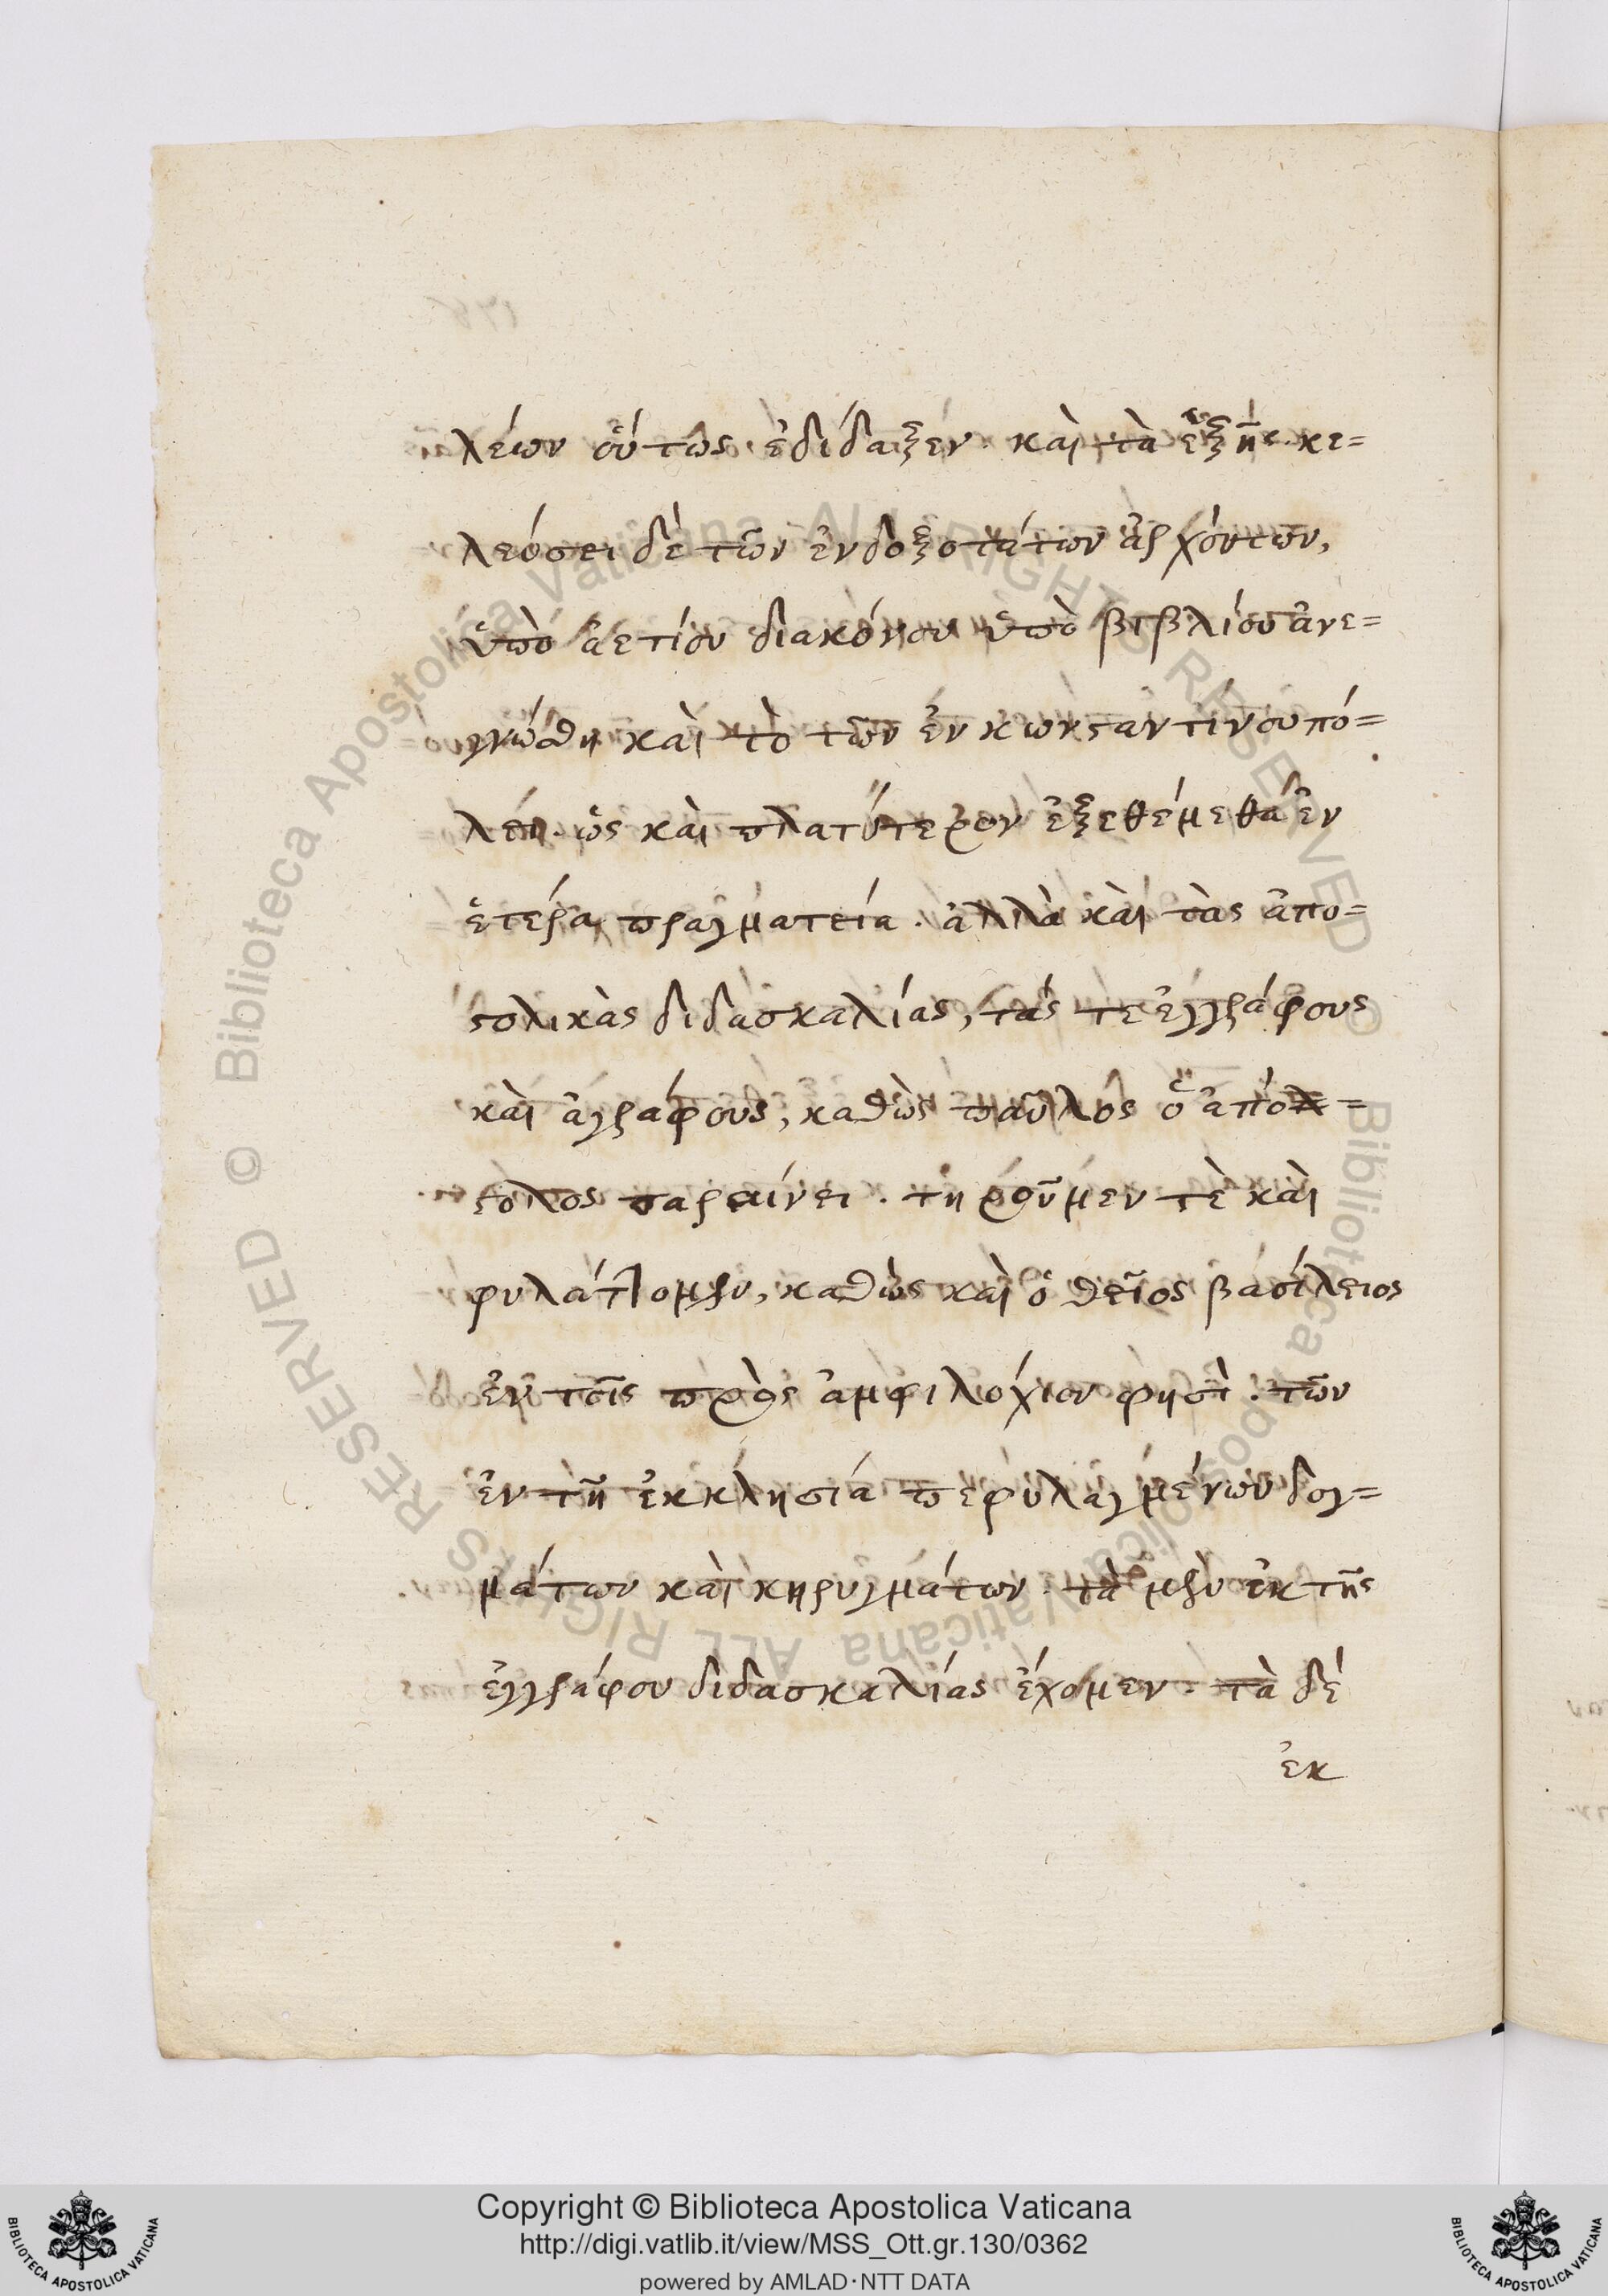 λέων οὕτως ἐδίδαξεν. καὶ τὰ ἑξῆς. κε=
λεύσει δὲ τῶν ἐνδοξοτάτων ἀρχόντων,
ὑπὸ ἀετίου διακόνου ὑπὸ βιβλίου ἀνε=
γνώσθη καὶ τὸ τῶν ἐν κωνσταντίνουπό=
λει. ὡς καὶ πλατύτερον ἐξεθέμεθα ἐν
ἑτέρα πραγματεία. ἀλλὰ καὶ τὰς ἀπο=
στολικὰς διδασκαλίας, τάς τε ἐγγράφους
καὶ ἀγράφους, καθὼς παῦλος ὁ ἀπό=
στολος παραίνει. τηροῦμεν τὲ καὶ
φυλάττομεν, καθὼς καὶ ὁ θεῖος βασίλειος
ἐν τοῖς πρὸς ἀμφιλόχιον φησὶ. τῶν
ἐν τῆ ἐκκλησία πεφυλαγμένων δογ=
μάτων καὶ κηρυγμάτων. τὰ μὲν ἐκ τῆς
ἐγγράφου διδασκαλίας ἔχομεν. τὰ δὲ
ἐκ
Copyright © Biblioteca Apostolica Vaticana
http://digi.vatlib.it/view/MSS_Ott.gr.130/0362
powered by AMLAD·NTT DATA
BIBLIOTECA APOSTOLICA VATICANA
BIBLIOTECA APOSTOLICA VATICANA
© Biblioteca Apostolica Vaticana ALL RIGHTS RESERVED
© Biblioteca Apostolica Vaticana ALL RIGHTS RESERVED